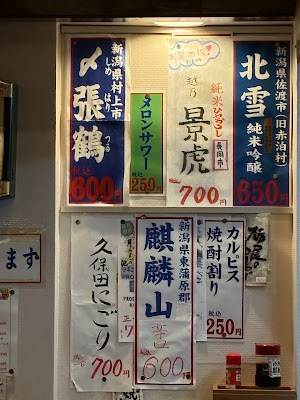 新潟県佐渡市(旧赤泊村)
北雪
純米吟醸
税込
650円
越乃
景虎
純米ひやおろし
長岡市
700円
メロンサワー
税込
250円
新潟県村上市
〆張鶴
しめ
はり
つる
税込
600円
カルピス
焼酎割り
税込
250円
新潟県東蒲原郡
麒麟山
600円
久保田にごり
700円
まず